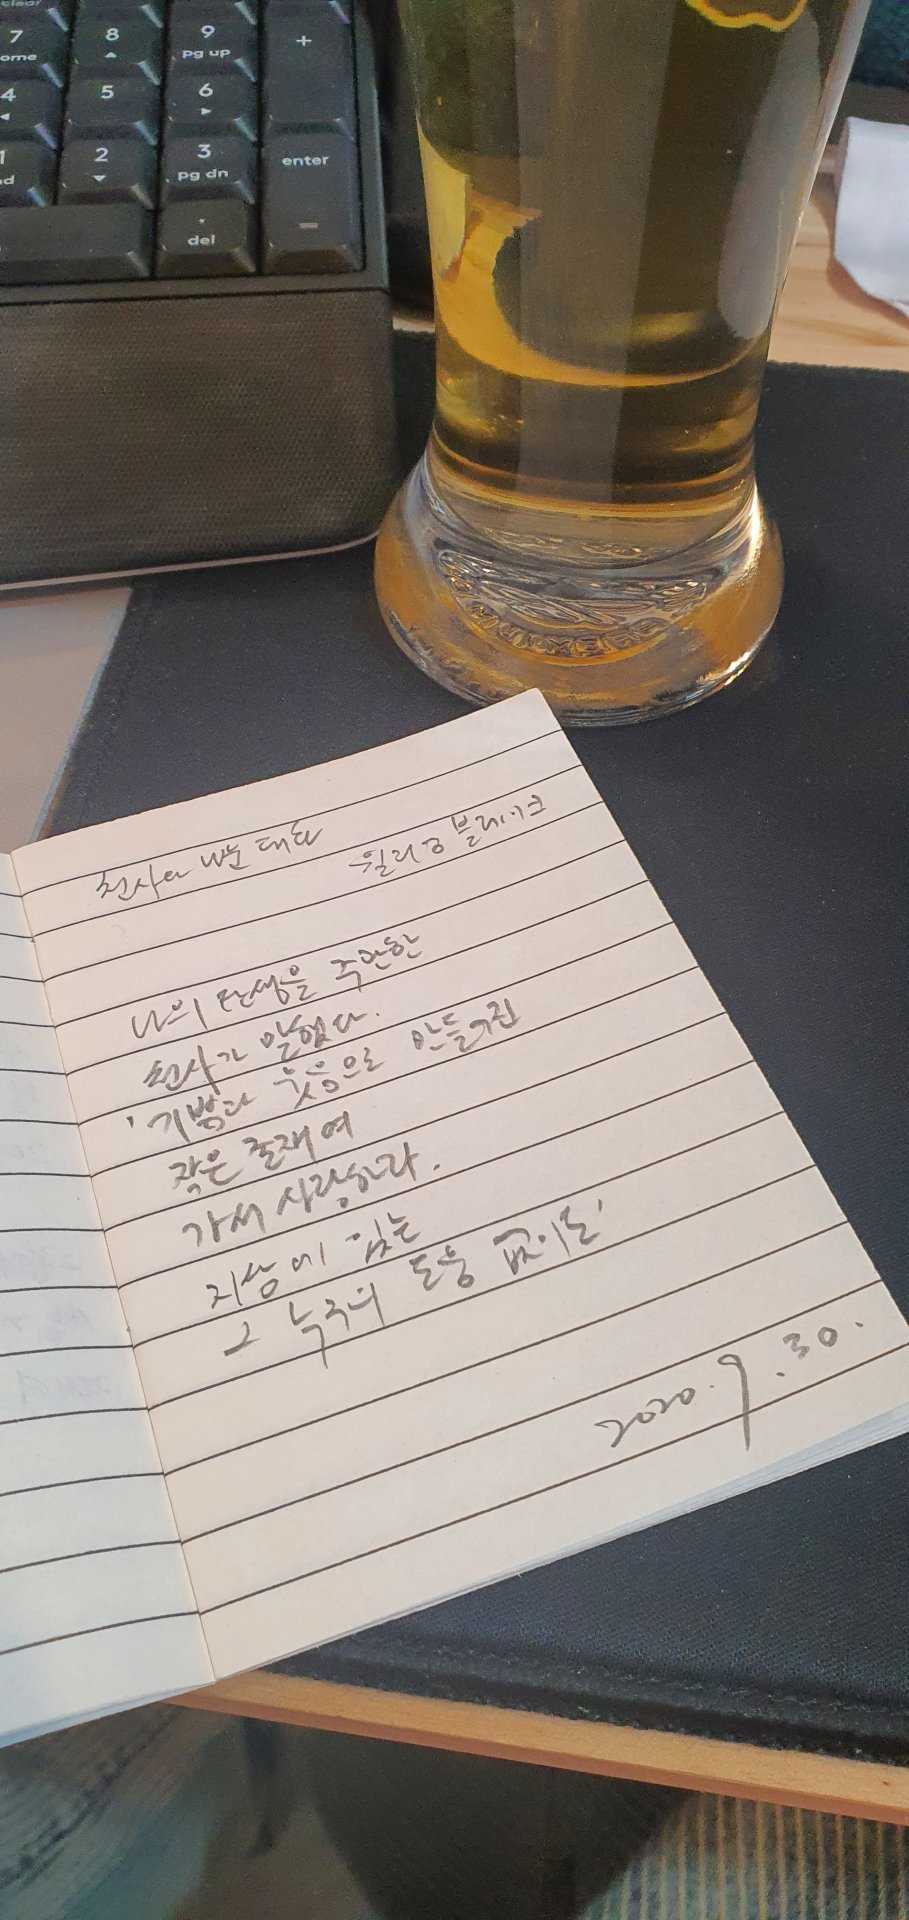 clear
7
ome
8
9
pg up
+
4
5
6
1
nd
2
3
pg dn
enter
.
del
=
천사와 나눈 대화
윌리엄 블레이크
나의 탄생을 주관한
천사가 말했다.
'기쁨과 웃음으로 만들어진
작은 존재여
가서 사랑하라.
지상에 있는
그 누구의 도움 없이도'
2020. 6. 30.